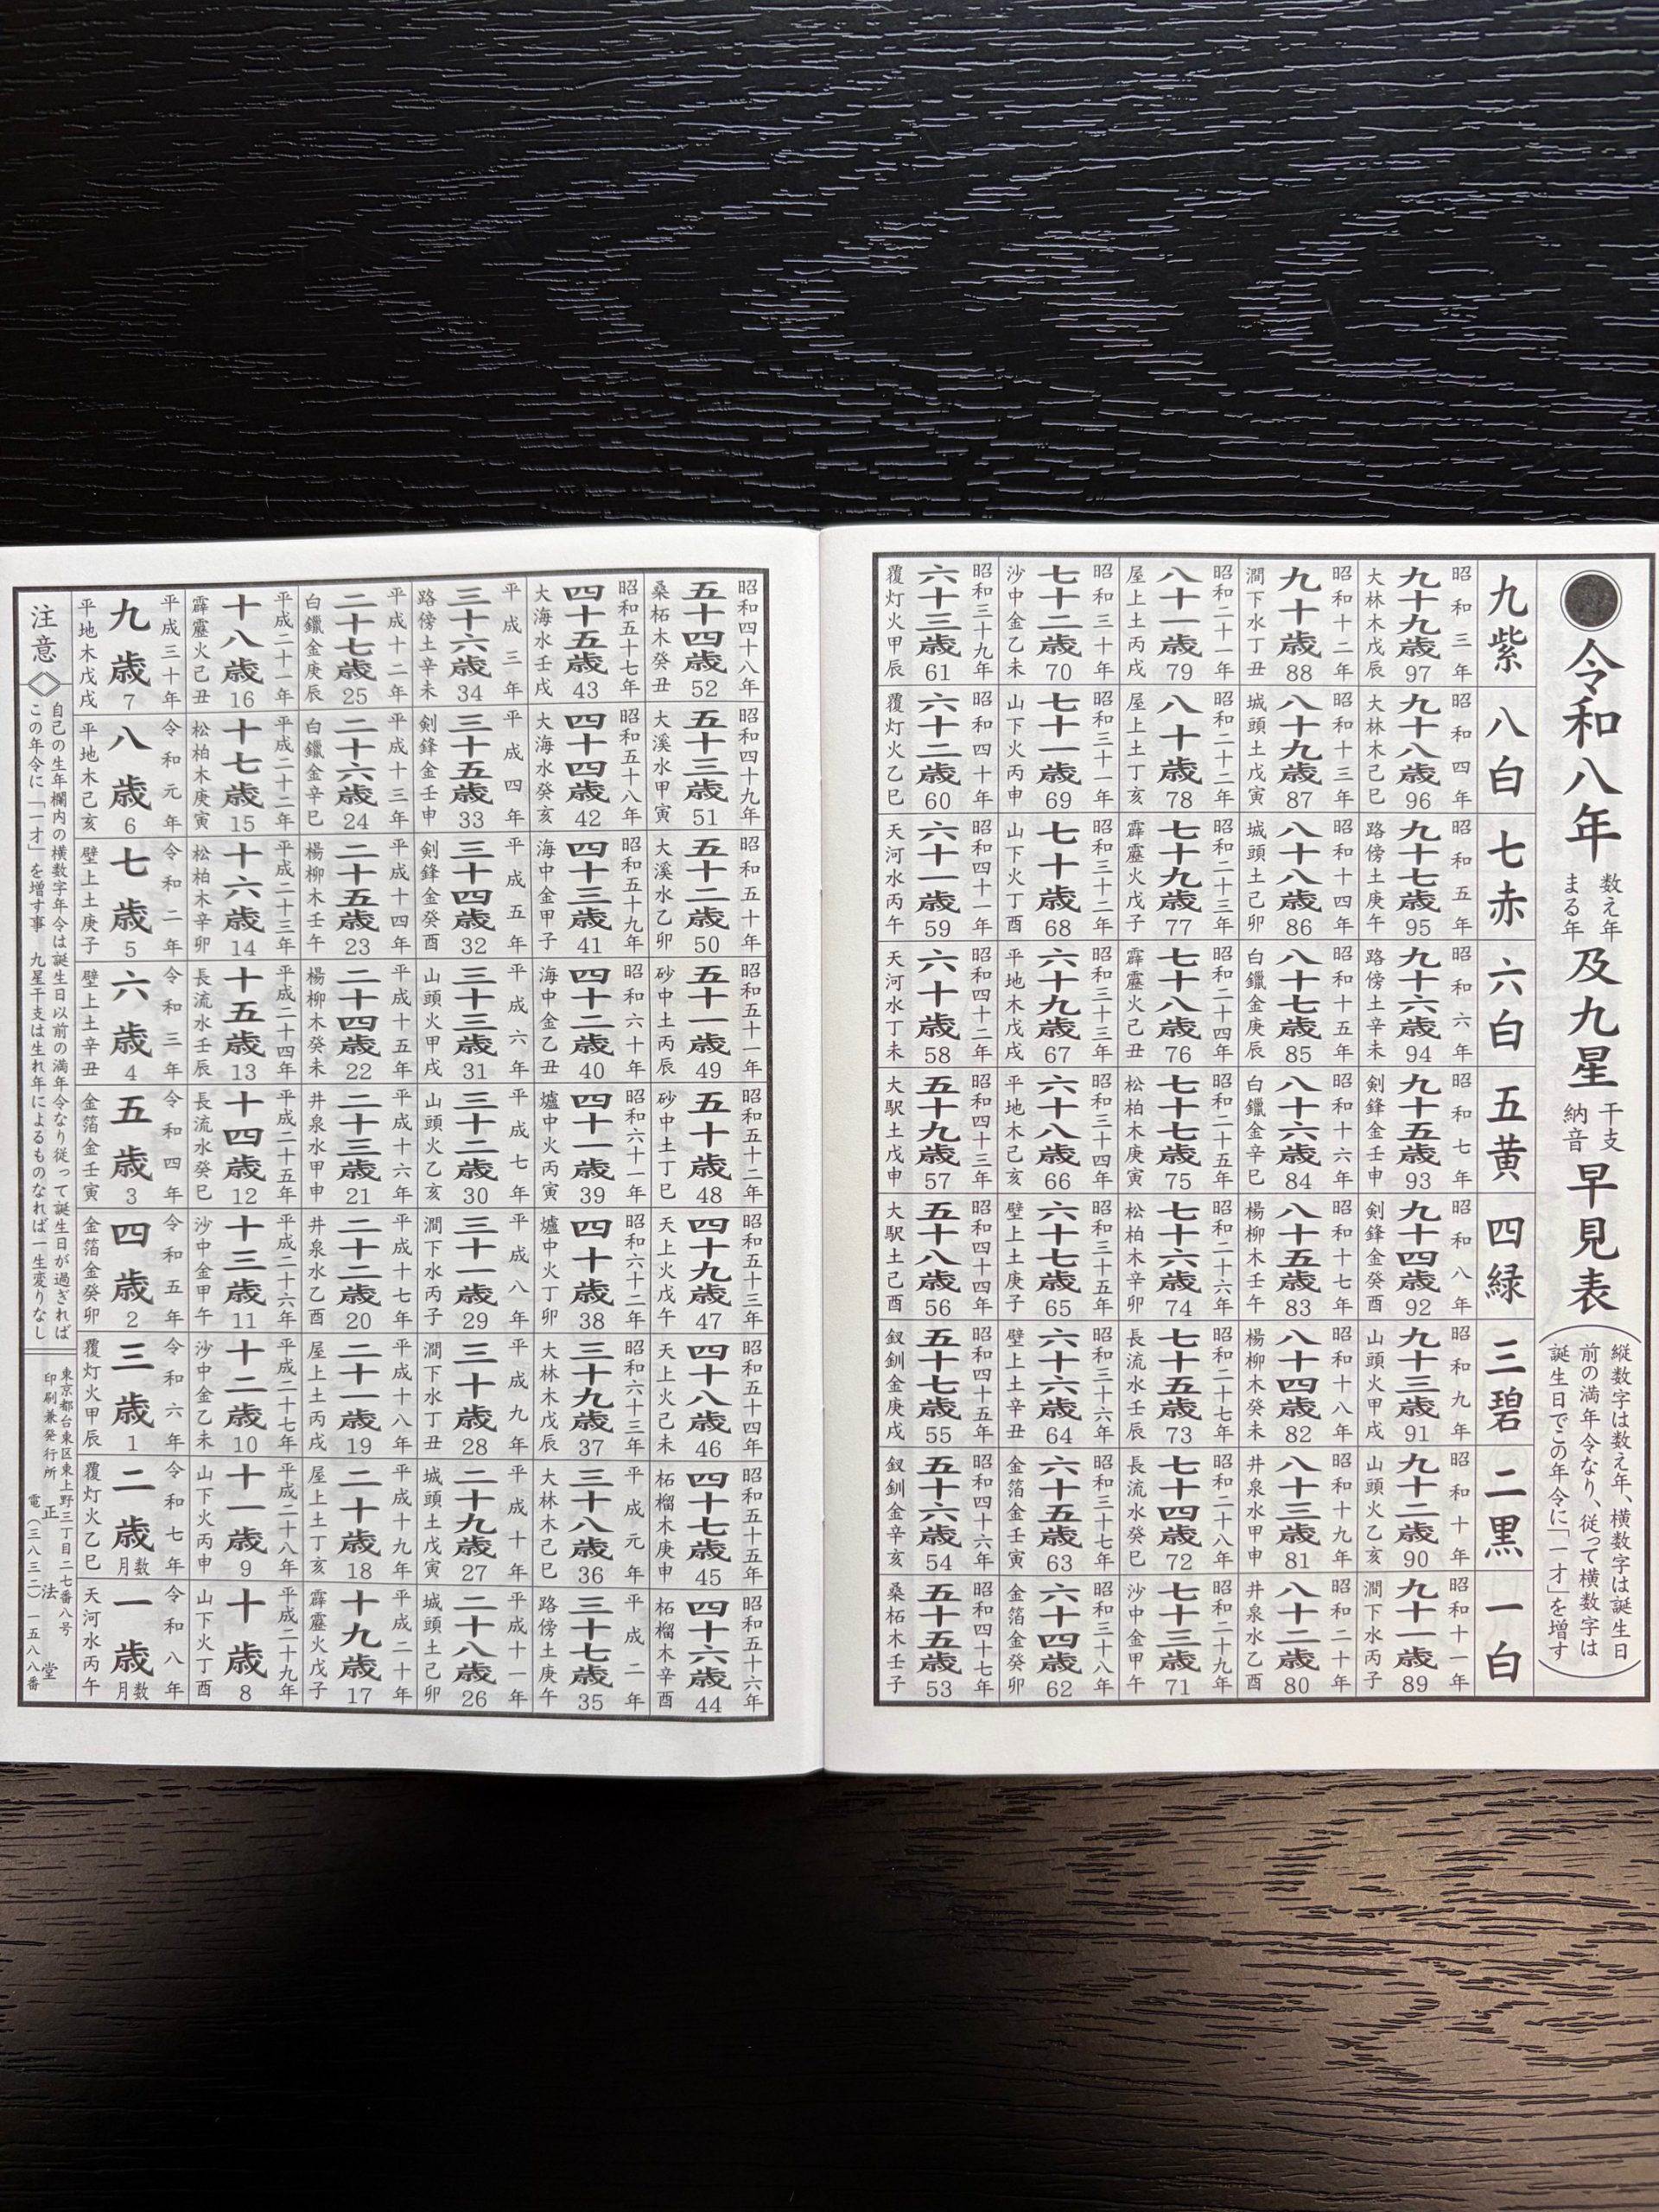 ●令和八年 数え年 まる年 及九星 干支 納音 早見表
(縦数字は数え年、横数字は誕生日
前の満年令なり、従って横数字は
誕生日でこの年令に「一才」を増す)
九紫
八白
七赤
六白
五黄
四緑
三碧
二黒
一白
昭和三年
九十九歳97
大林木戊辰
昭和四年
九十八歳96
大林木己巳
昭和五年
九十七歳95
路傍土庚午
昭和六年
九十六歳94
路傍土辛未
昭和七年
九十五歳93
剣鋒金壬申
昭和八年
九十四歳92
剣鋒金癸酉
昭和九年
九十三歳91
山頭火甲戌
昭和十年
九十二歳90
山頭火乙亥
昭和十一年
九十一歳89
澗下水丙子
昭和十二年
九十歳88
澗下水丁丑
昭和十三年
八十九歳87
城頭土戊寅
昭和十四年
八十八歳86
城頭土己卯
昭和十五年
八十七歳85
白鑞金庚辰
昭和十六年
八十六歳84
白鑞金辛巳
昭和十七年
八十五歳83
楊柳木壬午
昭和十八年
八十四歳82
楊柳木癸未
昭和十九年
八十三歳81
井泉水甲申
昭和二十年
八十二歳80
井泉水乙酉
昭和二十一年
八十一歳79
屋上土丙戌
昭和二十二年
八十歳78
屋上土丁亥
昭和二十三年
七十九歳77
霹靂火戊子
昭和二十四年
七十八歳76
霹靂火己丑
昭和二十五年
七十七歳75
松柏木庚寅
昭和二十六年
七十六歳74
松柏木辛卯
昭和二十七年
七十五歳73
長流水壬辰
昭和二十八年
七十四歳72
長流水癸巳
昭和二十九年
七十三歳71
沙中金甲午
昭和三十年
七十二歳70
沙中金乙未
昭和三十一年
七十一歳69
山下火丙申
昭和三十二年
七十歳68
山下火丁酉
昭和三十三年
六十九歳67
平地木戊戌
昭和三十四年
六十八歳66
平地木己亥
昭和三十五年
六十七歳65
壁上土庚子
昭和三十六年
六十六歳64
壁上土辛丑
昭和三十七年
六十五歳63
金箔金壬寅
昭和三十八年
六十四歳62
金箔金癸卯
昭和三十九年
六十三歳61
覆灯火甲辰
昭和四十年
六十二歳60
覆灯火乙巳
昭和四十一年
六十一歳59
天河水丙午
昭和四十二年
六十歳58
天河水丁未
昭和四十三年
五十九歳57
大駅土戊申
昭和四十四年
五十八歳56
大駅土己酉
昭和四十五年
五十七歳55
釵釧金庚戌
昭和四十六年
五十六歳54
釵釧金辛亥
昭和四十七年
五十五歳53
桑柘木壬子
昭和四十八年
五十四歳52
桑柘木癸丑
昭和四十九年
五十三歳51
大溪水甲寅
昭和五十年
五十二歳50
大溪水乙卯
昭和五十一年
五十一歳49
砂中土丙辰
昭和五十二年
五十歳48
砂中土丁巳
昭和五十三年
四十九歳47
天上火戊午
昭和五十四年
四十八歳46
天上火己未
昭和五十五年
四十七歳45
柘榴木庚申
昭和五十六年
四十六歳44
柘榴木辛酉
昭和五十七年
四十五歳43
大海水壬戌
昭和五十八年
四十四歳42
大海水癸亥
昭和五十九年
四十三歳41
海中金甲子
昭和六十年
四十二歳40
海中金乙丑
昭和六十一年
四十一歳39
爐中火丙寅
昭和六十二年
四十歳38
爐中火丁卯
昭和六十三年
三十九歳37
大林木戊辰
平成元年
三十八歳36
大林木己巳
平成二年
三十七歳35
路傍土庚午
平成三年
三十六歳34
路傍土辛未
平成四年
三十五歳33
剣鋒金壬申
平成五年
三十四歳32
剣鋒金癸酉
平成六年
三十三歳31
山頭火甲戌
平成七年
三十二歳30
山頭火乙亥
平成八年
三十一歳29
澗下水丙子
平成九年
三十歳28
澗下水丁丑
平成十年
二十九歳27
城頭土戊寅
平成十一年
二十八歳26
城頭土己卯
平成十二年
二十七歳25
白鑞金庚辰
平成十三年
二十六歳24
白鑞金辛巳
平成十四年
二十五歳23
楊柳木壬午
平成十五年
二十四歳22
楊柳木癸未
平成十六年
二十三歳21
井泉水甲申
平成十七年
二十二歳20
井泉水乙酉
平成十八年
二十一歳19
屋上土丙戌
平成十九年
二十歳18
屋上土丁亥
平成二十年
十九歳17
霹靂火戊子
平成二十一年
十八歳16
霹靂火己丑
平成二十二年
十七歳15
松柏木庚寅
平成二十三年
十六歳14
松柏木辛卯
平成二十四年
十五歳13
長流水壬辰
平成二十五年
十四歳12
長流水癸巳
平成二十六年
十三歳11
沙中金甲午
平成二十七年
十二歳10
沙中金乙未
平成二十八年
十一歳9
山下火丙申
平成二十九年
十歳8
山下火丁酉
平成三十年
九歳7
平地木戊戌
令和元年
八歳6
平地木己亥
令和二年
七歳5
壁上土庚子
令和三年
六歳4
壁上土辛丑
令和四年
五歳3
金箔金壬寅
令和五年
四歳2
金箔金癸卯
令和六年
三歳1
覆灯火甲辰
令和七年
二歳月数
覆灯火乙巳
令和八年
一歳月数
天河水丙午
注意
自己の生年欄内の横数字年令は誕生日以前の満年令なり従って誕生日が過ぎれば
この年令に「一才」を増す事 九星干支は生れ年によるものなれば一生変りなし
東京都台東区東上野三丁目二七番八号
印刷兼発行所 正法堂
電(三八三二)一五八八番